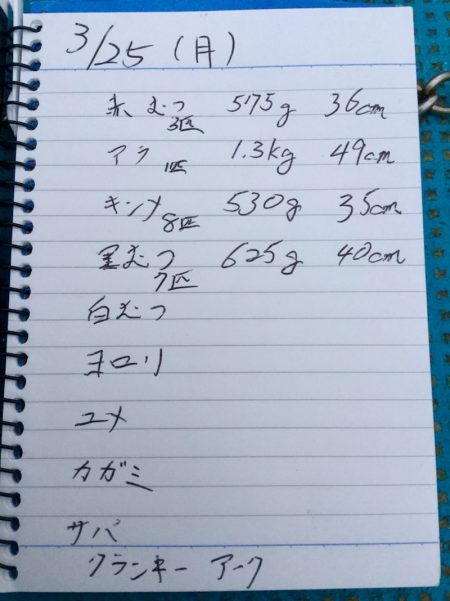 3/25 (月)
赤むつ 3匹 575g 36cm
アラ 1匹 1.3kg 49cm
キンメ 8匹 530g 35cm
黒むつ 7匹 625g 40cm
白むつ
ヨロリ
ユメ
カガミ
サバ
クランキー アーク